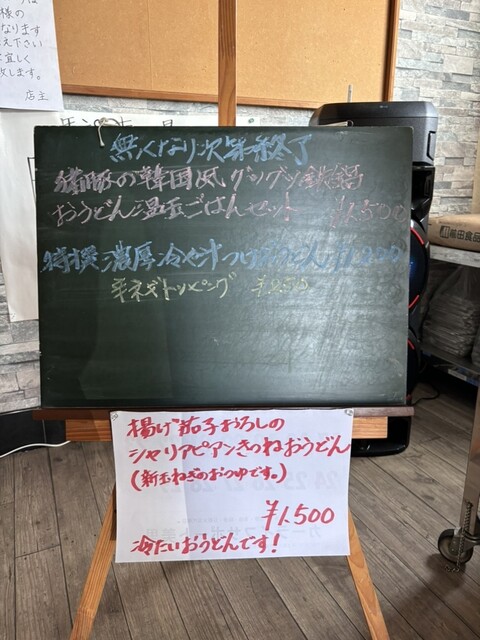 様の
なります
え下さい
宜しく
致します。
店主
無くなり次第終了
豚の韓国風グツグツ鉄鍋
おうどん温玉ごはんセット ¥1,500
特撰濃厚冷や汁つけおうどん
半ネギトッピング
揚げ茄子おろしの
シャリアピアンきつねおうどん
(新玉ねぎのおつゆです。)
¥1,500
冷たいおうどんです!